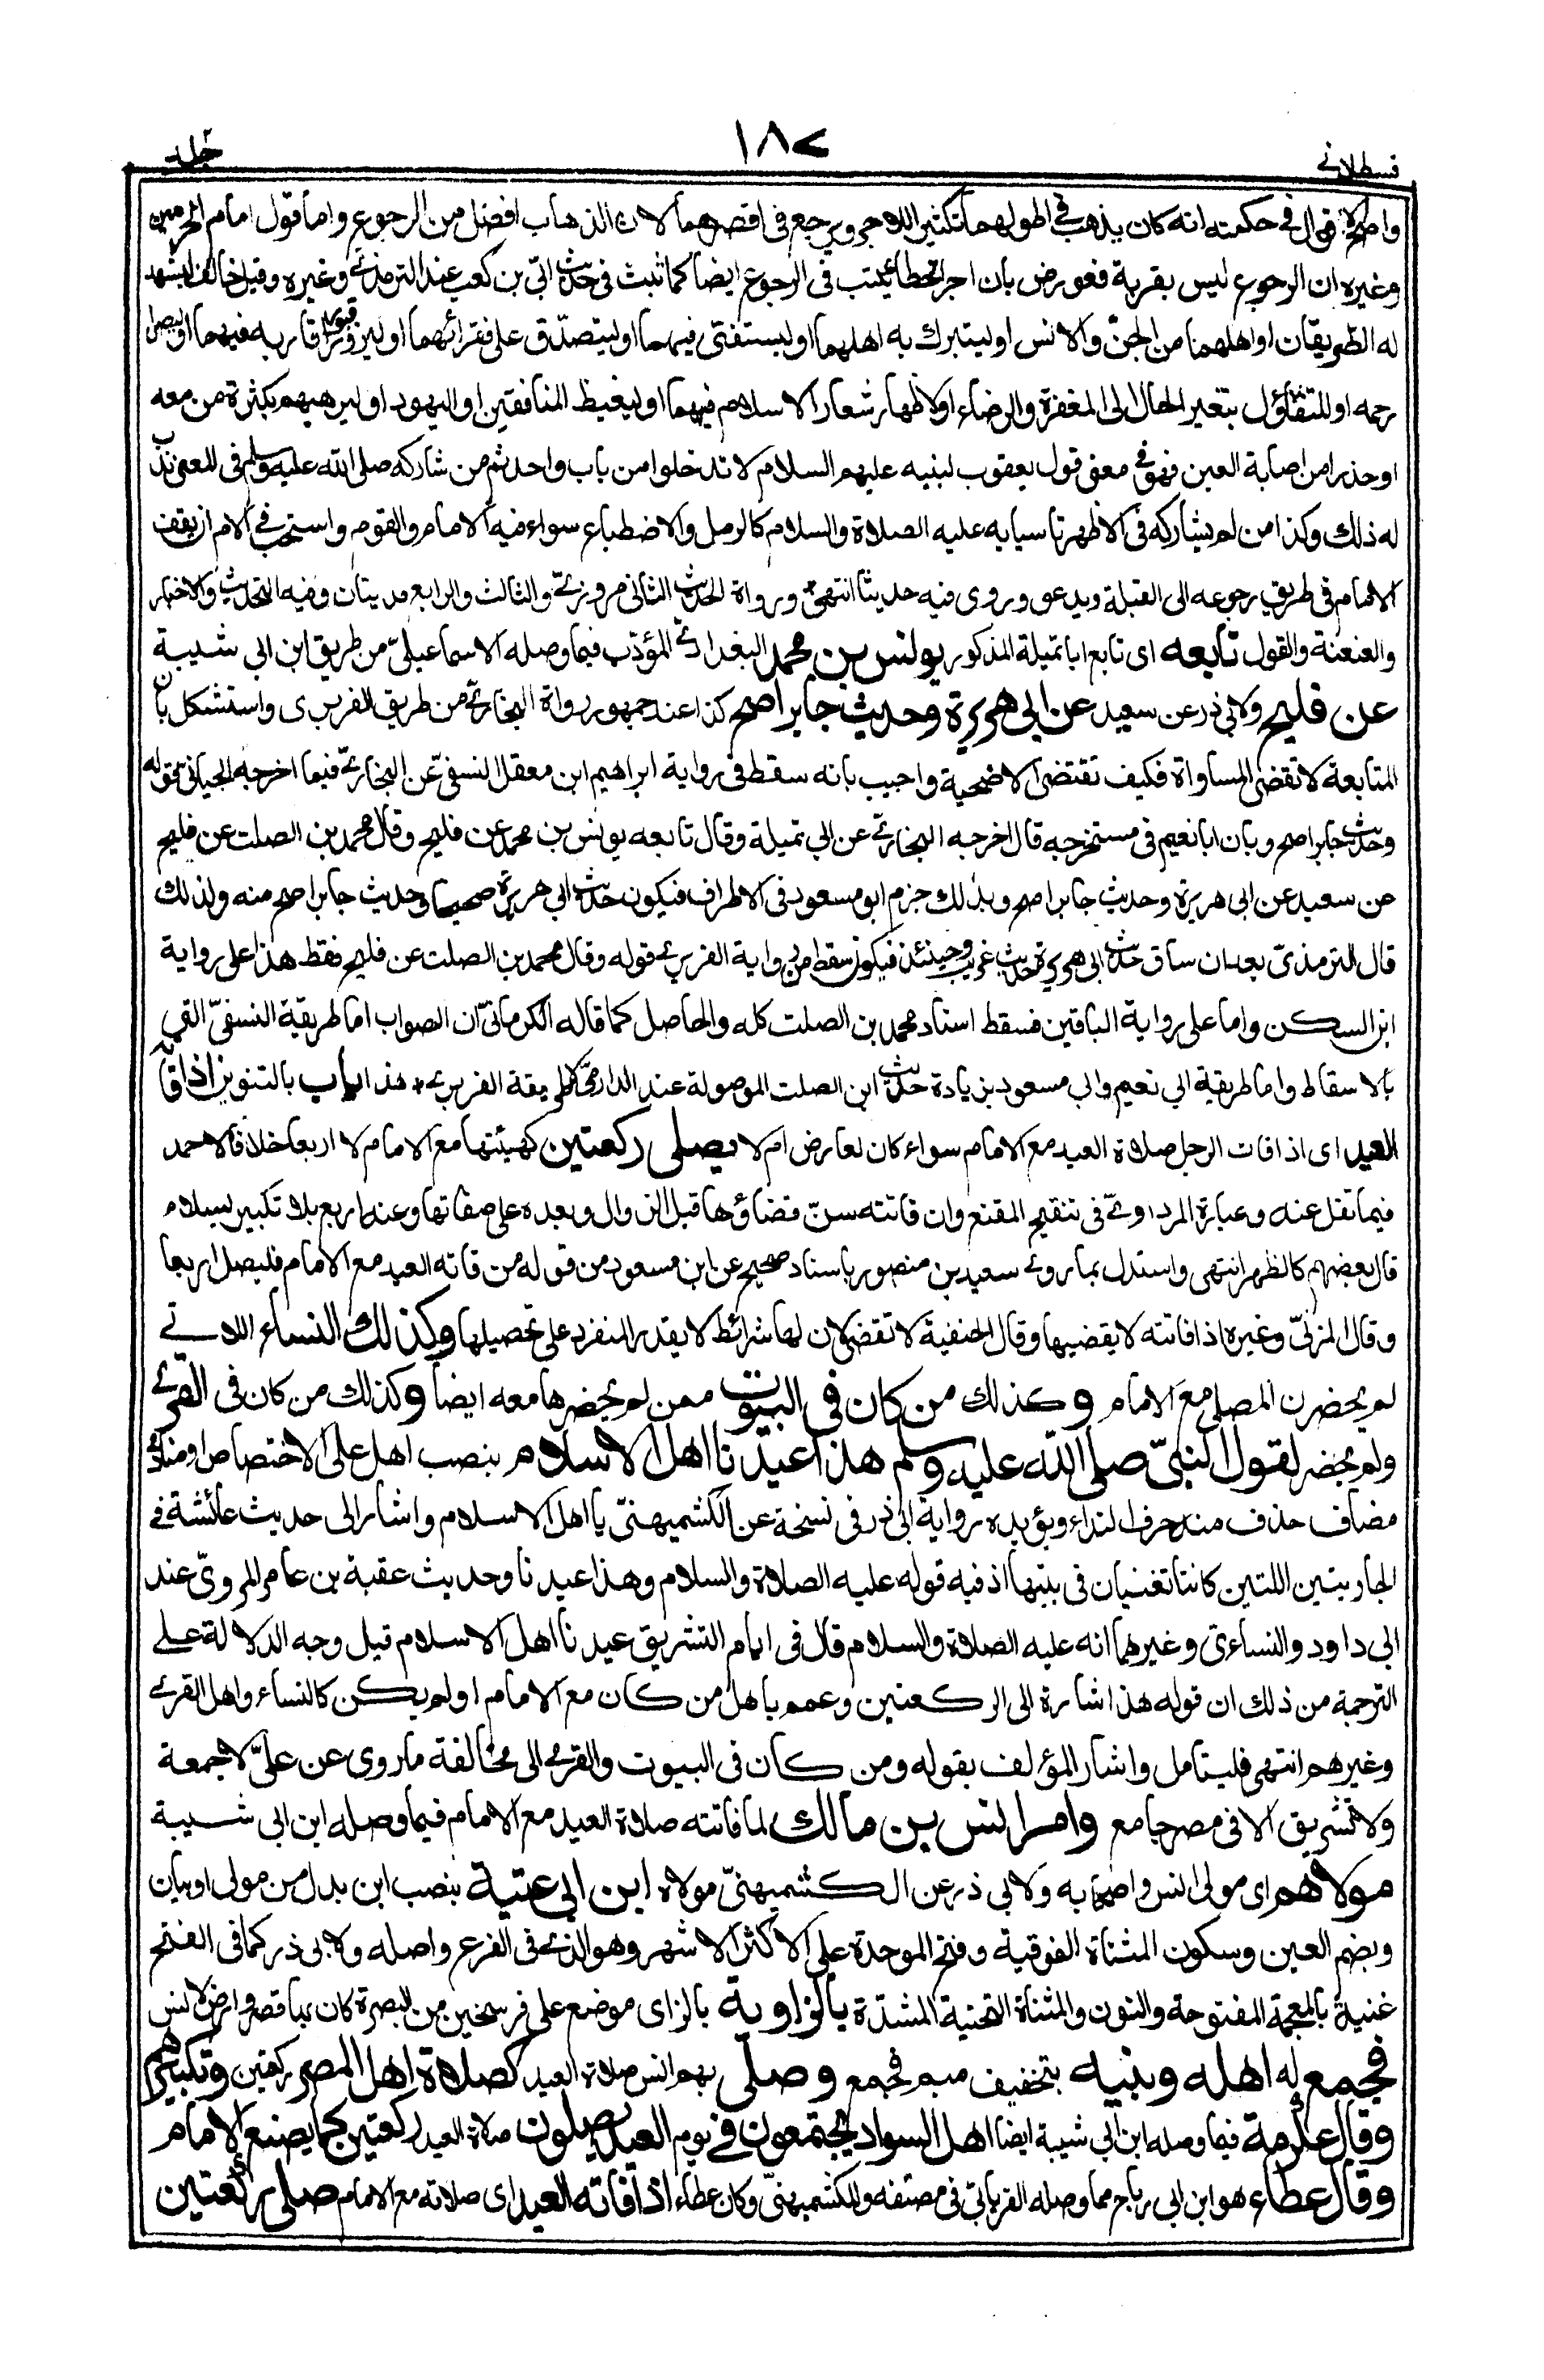 قسطلاني
١٨٧
جلد
واصح الاقوال في حكمته انه كان يذهب في اطولهما تكثيرا للاجر ويرجع في اقصرهما لان الذهاب افضل من الرجوع واما قول امام الحرمين
وغيره ان الرجوع ليس بقربة فعورض بان اجر الخطا يكتب في الرجوع ايضا كما ثبت في حديث ابيّ بن كعب عند الترمذي وغيره وقيل خالف ليشهد
له الطريقان او اهلهما من الجنّ والانس او ليتبرك به اهلهما او ليستفتى فيهما او ليتصدّق على فقرائهما او ليزور قبور اقاربه فيهما او ليصل
رحمه او للتفاؤل بتغير الحال الى المغفرة والرضاء او لاظهار شعار الاسلام فيهما او ليغيظ المنافقين او اليهود او ليرهبهم بكثرة من معه
او حذرا من اصابة العين فهو في معنى قول يعقوب لبنيه عليهم السلام لا تدخلوا من باب واحد ثم من شاركه صلى الله عليه وسلم في المعنى ندب
له ذلك وكذا من لم يشاركه في الاظهر تاسيا به عليه الصلاة والسلام كالرمل والاضطباع سواء فيه الامام والقوم واستحب في الام ان يقف
الامام في طريق رجوعه الى القبلة ويدعو وروى فيه حديثا انتهى ورواة الحديث الثاني مروزيّ والثالث والرابع مدينان وفيه التحديث والاخبار
والعنعنة والقول تابعه اى تابع ابا تميلة المذكور يونس بن محمد البغدادي المؤدّب فيما وصله الاسماعيليّ من طريق ابن ابي شيبة
عن فليح ولابي ذر عن سعيد عن ابي هريرة وحديث جابر اصح كذا عند جمهور رواة البخاريّ من طريق الفربرى واستشكل بان
المتابعة لا تقتضي المساواة فكيف تقتضي الاصحية واجيب بانه سقط في رواية ابراهيم ابن معقل النسفيّ عن البخاريّ فيما اخرجه الجياني قوله
وحديث جابر اصح وبان ابا نعيم في مستخرجه قال اخرجه البخاريّ عن ابي تميلة وقال تابعه يونس بن محمد عن فليح وقال محمد بن الصلت عن فليح
عن سعيد عن ابي هريرة وحديث جابر اصح وبذلك جزم ابو مسعود في الاطراف فيكون حديث ابي هريرة صحيحا وحديث جابر اصح منه ولذلك
قال الترمذيّ بعد ان ساق حديث ابي هريرة حديث غريب وحينئذ فيكون سقط من رواية الفربريّ قوله وقال محمد بن الصلت عن فليح فقط هذا على رواية
ابن السكن واما على رواية الباقين فسقط اسناد محمد بن الصلت كله والحاصل كما قاله الكرمانيّ ان الصواب اما طريقة النسفيّ التي
بالاسقاط واما طريقة ابي نعيم وابي مسعود بزيادة حديث ابن الصلت الموصولة عند الدارميّ لا طريقة الفربريّ هذا باب بالتنوين اذا فاته
العيد اى اذا فات الرجل صلاة العيد مع الامام سواء كان لعارض ام لا يصلى ركعتين كهيئتها مع الامام لا اربعا خلافا لاحمد
فيما نقل عنه وعبارة المرداويّ في تنقيح المقنع وان فاتته سنّ قضاؤها قبل الزوال وبعده على صفاتها وعنه اربع بلا تكبير بسلام
قال بعضهم كالظهر انتهى واستدل بما روى سعيد بن منصور باسناد صحيح عن ابن مسعود من قوله من فاته العيد مع الامام فليصل اربعا
وقال المزنيّ وغيره اذا فاتته لا يقضيها وقال الحنفية لا تقضى لان لها شرائط لا يقدر المنفرد على تحصيلها وكذلك النساء اللاتي
لم يحضرن المصلى مع الامام وكذلك من كان في البيوت ممن لم يحضرها معه ايضا وكذلك من كان في القرى
ولم يحضر لقول النبيّ صلى الله عليه وسلم هذا عيدنا اهل الاسلام بنصب اهل على الاختصاص او منادى
مضاف حذف منه حرف النداء ويؤيده رواية ابي ذر في نسخة عن الكشميهنيّ يا اهل الاسلام واشار الى حديث عائشة في
الجاريتين اللتين كانتا تغنيان في بيتها اذ فيه قوله عليه الصلاة والسلام وهذا عيدنا وحديث عقبة بن عامر المرويّ عند
ابي داود والنساءي وغيرهما انه عليه الصلاة والسلام قال في ايام التشريق عيدنا اهل الاسلام قيل وجه الدلالة على
الترجمة من ذلك ان قوله هذا اشارة الى الركعتين وعمم باهل من كان مع الامام او لم يكن كالنساء واهل القرى
وغيرهم انتهى فليتامل واشار المؤلف بقوله ومن كان في البيوت والقرى الى مخالفة ما روى عن عليّ لا جمعة
ولا تشريق الا في مصر جامع وامر انس بن مالك لما فاتته صلاة العيد مع الامام فيما وصله ابن ابي شيبة
مولاهم اى مولى انس واصحابه ولابي ذر عن الكشميهنيّ مولاه ابن ابي عتبة بنصب ابن بدل من مولى او بيان
وبضم العين وسكون المثناة الفوقية وفتح الموحدة على الاكثر الاشهر وهو الذي في الفرع واصله ولابي ذر كما في الفتح
غنية بالمعجمة المفتوحة والنون والمثناة التحتية المشدّدة بالزاوية بالزاى موضع على فرسخين من البصرة كان بها قصر وارض لانس
فجمع له اهله وبنيه بتخفيف ميم فجمع وصلى بهم انس صلاة العيد كصلاة اهل المصر ركعتين وتكبيرهم
وقال عكرمة فيما وصله ابن ابي شيبة ايضا اهل السواد يجتمعون في يوم العيد يصلون صلاة العيد ركعتين كما يصنع الامام
وقال عطاء هو ابن ابي رباح مما وصله الفريابيّ في مصنفه وللكشميهنيّ وكان عطاء اذا فاته العيد اى صلاته مع الامام صلى ركعتين